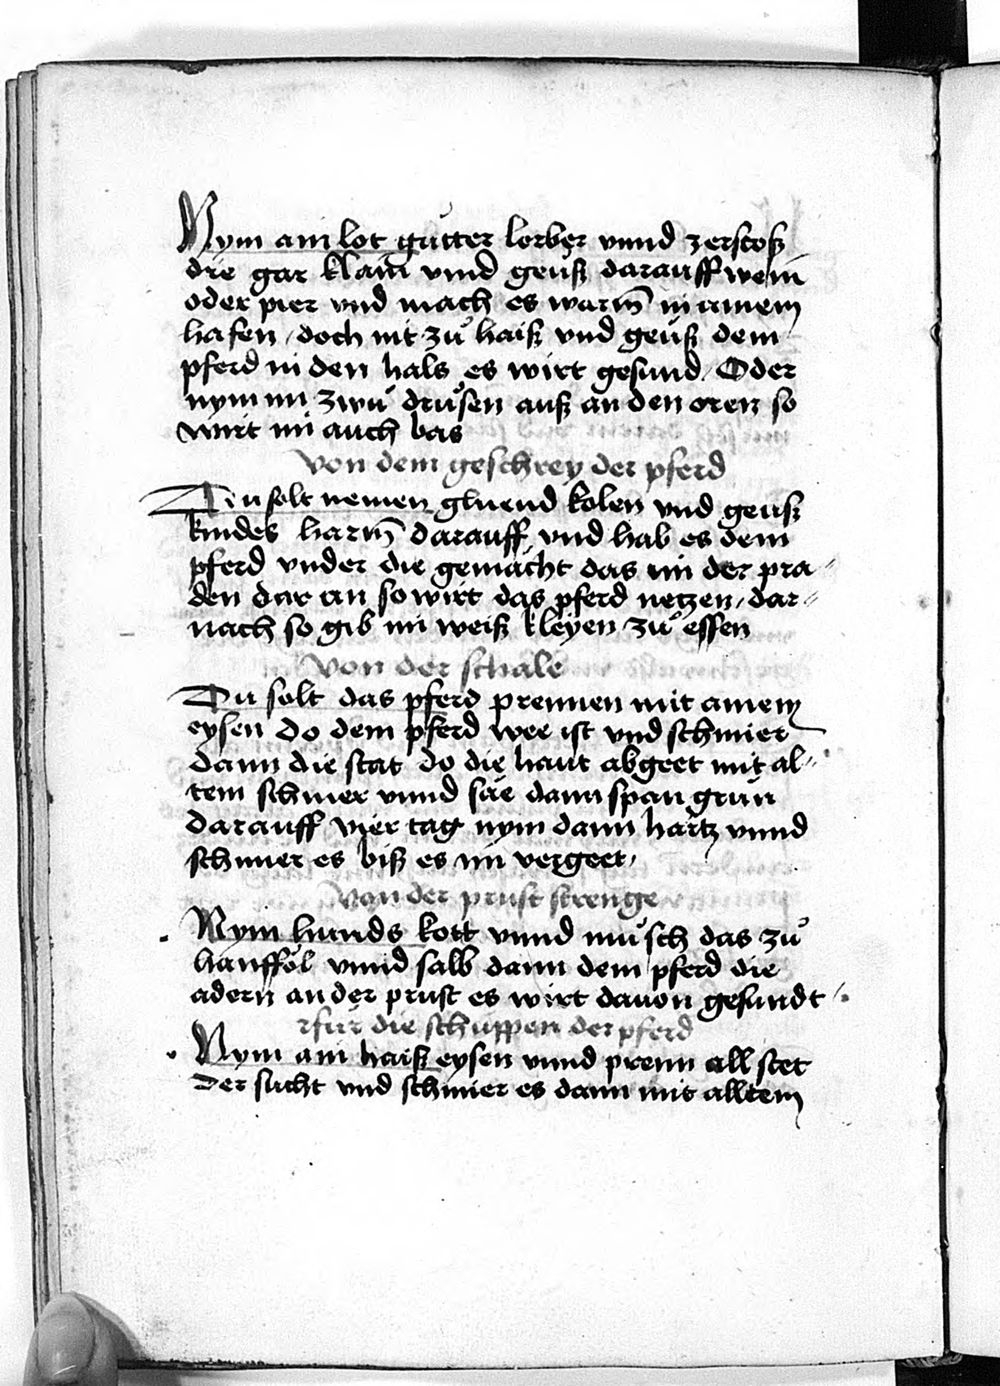 Nym ain lot gutter lorber vnnd zerstoß
die gar klain vnnd geuß darauff wein
oder pier vnd mach es warm̄ in ainem
hafen / doch nit zů haiß vnd geuß dem
pferd in den hals es wirt gesund / Oder
nym im zwu drůsen auß an den oren so
wirt im auch bas
Von dem geschrey der pferd
Du solt nemen gluend kolen vnd geuß
kindes harm̄ darauff vnd hab es dem
pferd vnder die gemacht das im der pra//
den dar an so wirt das pferd netzen / dar//
nach so gib im weiß kleyen zů essen
Von der schale
Du solt das pferd prennen mit ainem
eysen do dem pferd wee ist vnd schmier
dann die stat do die haut abgeet mit al//
tem schmer vnnd säe dann spangrün
darauff vier tag nym dann hartz vnnd
schmier es biß es im vergeet /
Von der prust strenge
Nym hunds kott vnnd můsch das zů
hanfföl vnnd salb dann dem pferd die
adern an der prust es wirt dauon gesundt /
Für die schuppen der pferd
Nym ain haiß eysen vnnd prenn all stet
der sucht vnd schmier es dann mit alltem